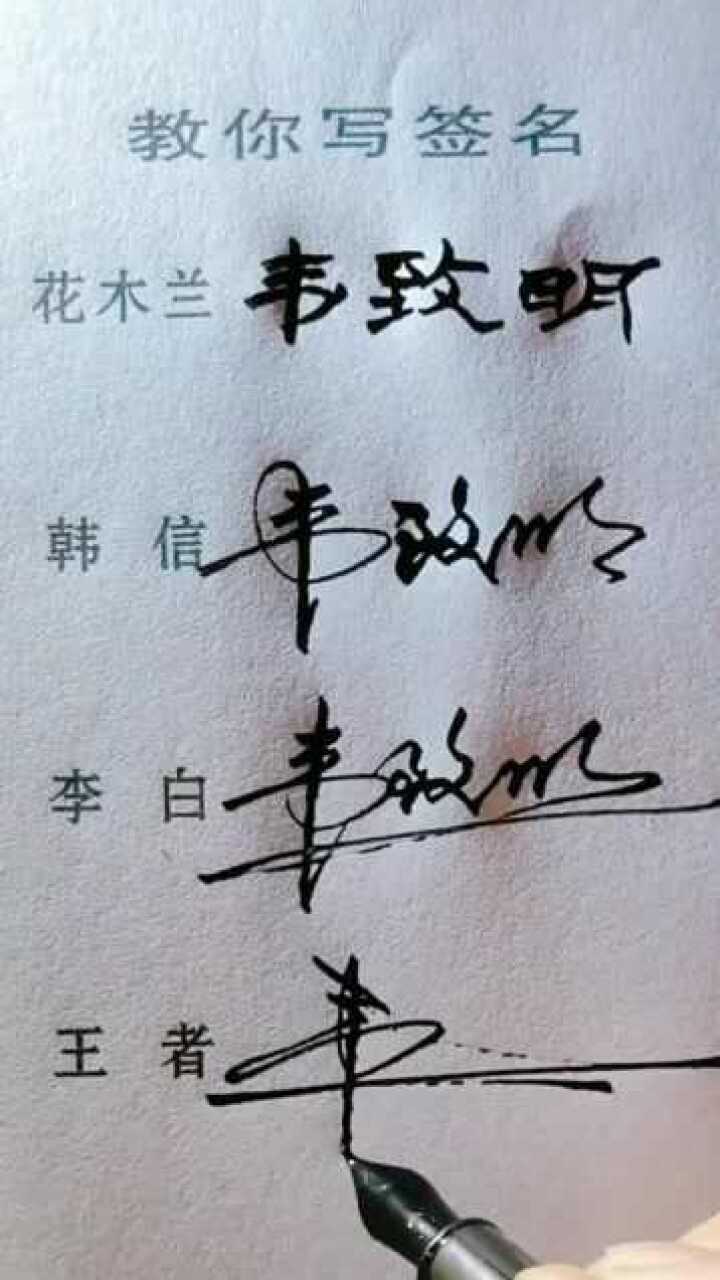 教你写签名
花木兰 韦致明
韩信 韦致明
李白 韦致明
王者 韦